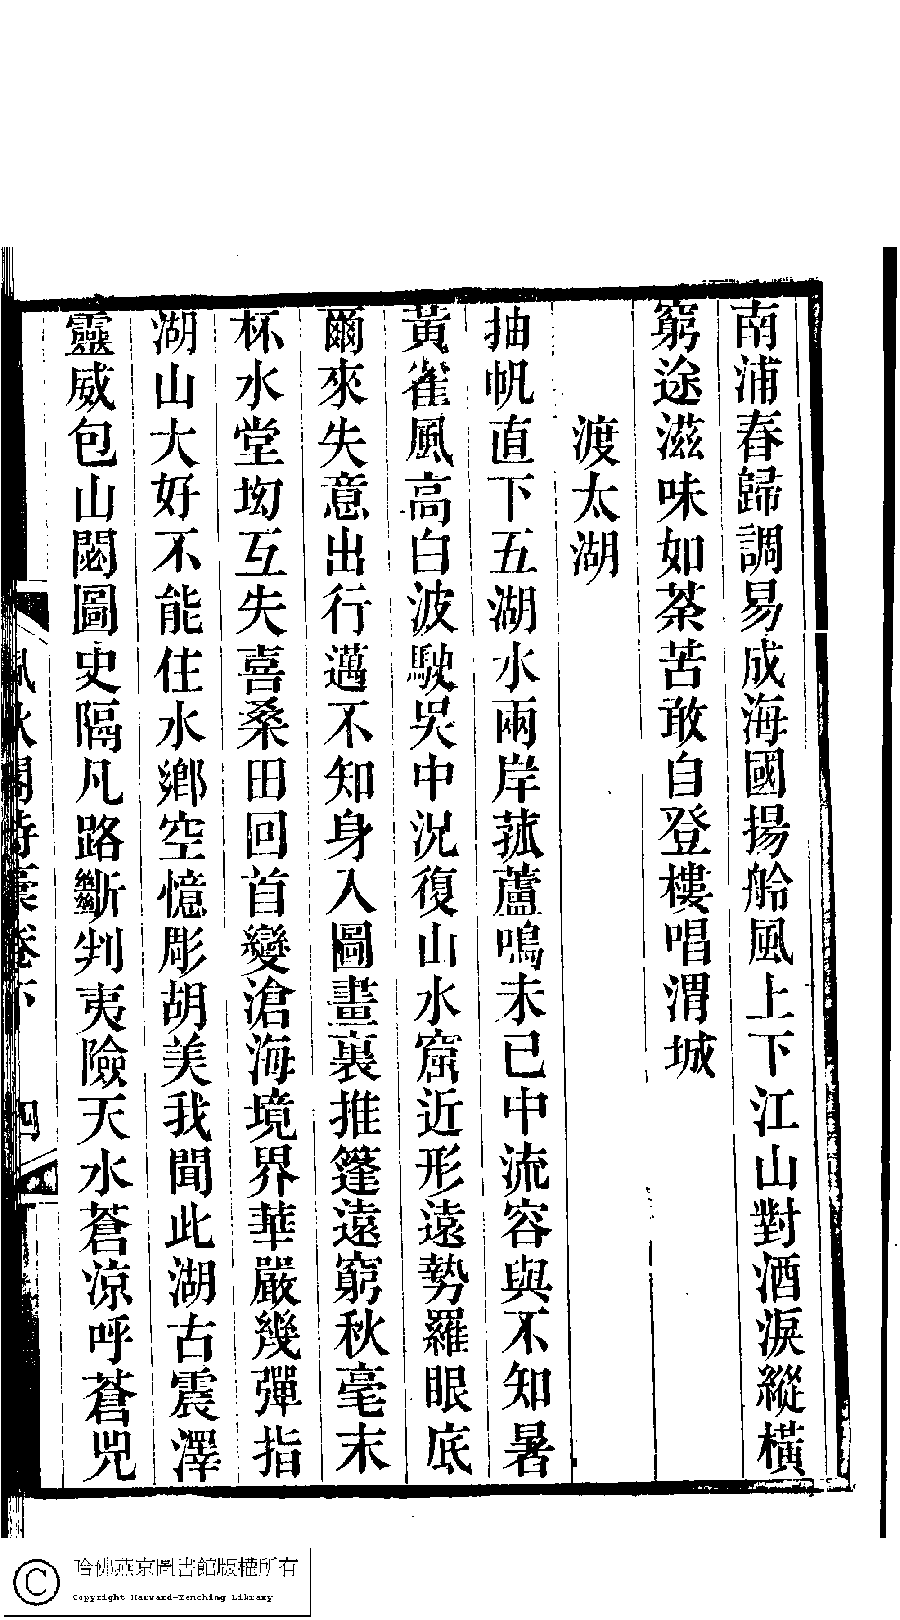 南浦春歸調易成海國揚舲風上下江山對酒淚縱橫
窮途滋味如茶苦敢自登樓唱渭城
渡太湖
抽帆直下五湖水兩岸菰蘆鳴未已中流容與不知暑
黃雀風高白波駛吳中況復山水窟近形遠勢羅眼底
爾來失意出行邁不知身入圖畫裏推篷遠窮秋毫末
杯水堂坳互失喜桑田回首變滄海境界華嚴幾彈指
湖山大好不能住水鄉空憶彫胡美我聞此湖古震澤
靈威包山閟圖史隔凡路斷判夷險天水蒼凉呼蒼兕
閣詩豪卷下
四
哈佛燕京圖書館版權所有
Copyright Harvard-Yenching Library